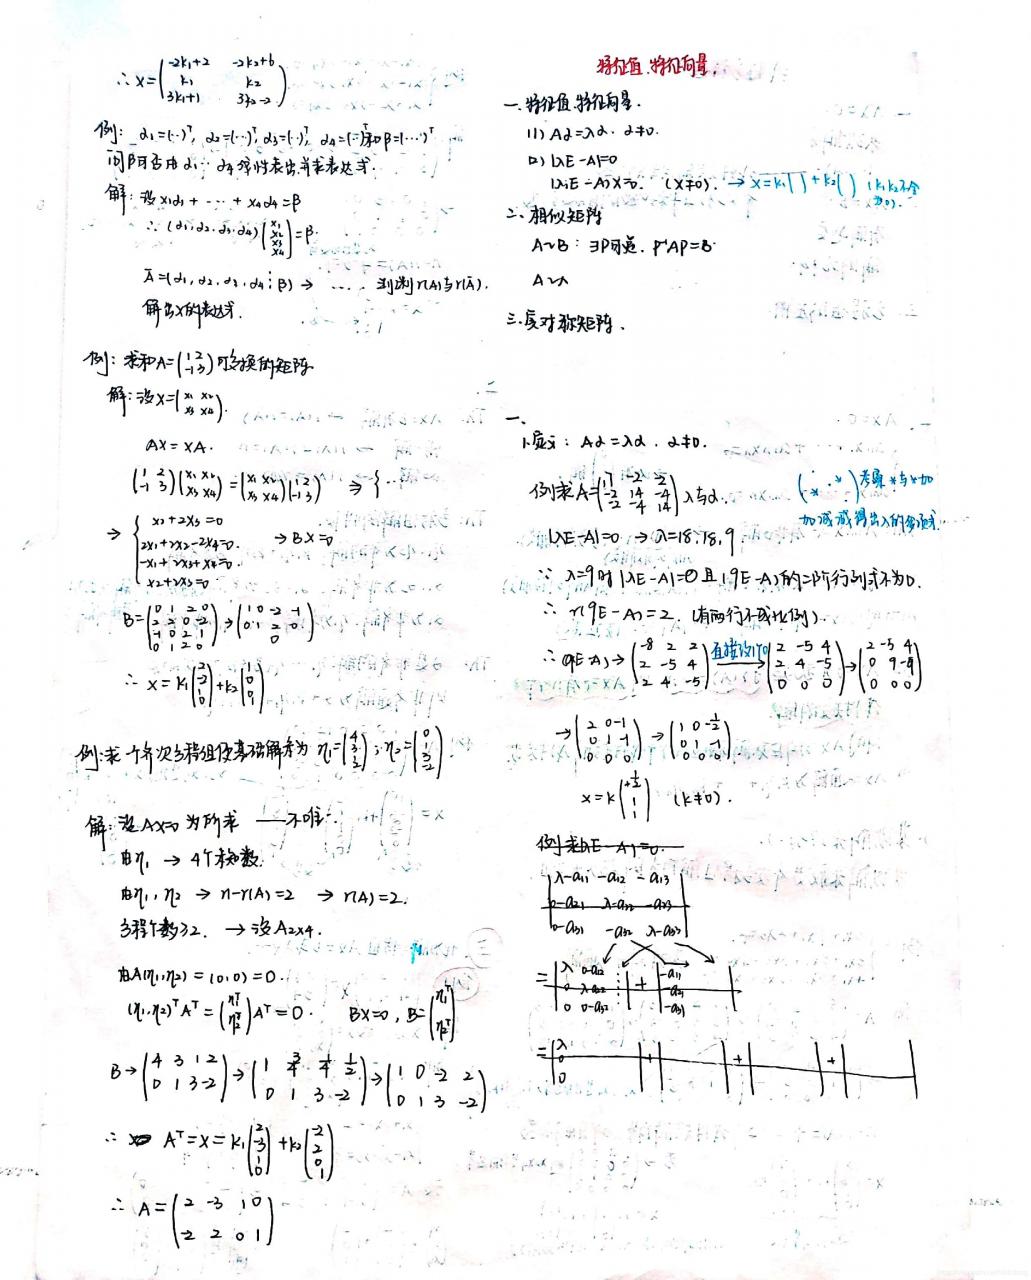 ∴ X=(-2k₁+2 -2k₂+6
k₁ k₂
3k₁+1 3k₂-2)
例: α₁=(…)ᵀ, α₂=(…)ᵀ, α₃=(…)ᵀ, α₄=(…)ᵀ和β=(…)ᵀ
问β可否由α₁…α₄线性表出并求表达式.
解: 设x₁α₁+…+x₄α₄=β
∴ (α₁,α₂,α₃,α₄)(x₁ x₂ x₃ x₄)=β.
Ā=(α₁,α₂,α₃,α₄⋮β) → …… 判断r(A)与r(Ā).
解出x的表达式.
例: 求和A=(1 2
-1 3)可交换的矩阵
解: 设X=(x₁ x₂
x₃ x₄).
AX=XA.
(1 2
-1 3)(x₁ x₂
x₃ x₄)=(x₁ x₂
x₃ x₄)(1 2
-1 3) ⇒ {
→ { x₂+2x₃=0
2x₁+2x₂-2x₄=0.
-x₁+2x₃+x₄=0.
x₂+2x₃=0
→BX=0
B=(0 1 2 0
2 2 0 -2
-1 0 2 1
0 1 2 0)→(1 0 -2 -1
0 1 2 0
0)
∴ x=k₁(2 -2 1 0)+k₂(1 0 0 1)
例:求一个齐次方程组使基础解系为 η₁=(4 3 1 2); η₂=(0 1 3 -2)
解: 设AX=0为所求 ——不唯一.
由η₁ → 4个未知数.
由η₁,η₂ → n-r(A)=2 → r(A)=2.
方程个数≥2. → 设A₂ₓ₄.
由A(η₁,η₂)=(0,0)=0
(η₁,η₂)ᵀAᵀ=(η₁ᵀ
η₂ᵀ)Aᵀ=0. BX=0, B=(η₁ᵀ
η₂ᵀ)
B→(4 3 1 2
0 1 3 -2)→(1 3/4 1/4 1/2
0 1 3 -2)→(1 0 -2 2
0 1 3 -2)
∴ Aᵀ=X=k₁(2 -3 1 0)+k₂(-2 2 0 1)
∴ A=(2 -3 1 0
-2 2 0 1)
特征值.特征向量.
一.特征值.特征向量.
(1) Aα=λα. α≠0.
(2) |λE-A|=0
(λᵢE-A)X=0. (X≠0). → x=k₁( )+k₂( ) (k₁k₂不全
为0).
二.相似矩阵
A~B: ∃P可逆. P⁻¹AP=B
A~Λ
三.实对称矩阵.
一.
1.定义: Aα=λα. α≠0.
例求A=(17 -2 -2
-2 14 -4
-2 -4 14)λ与α.
考虑*与*加
加减减得出λ的多项式
|λE-A|=0 →λ=18,18,9
∵ λ=9时|λE-A|=0且(9E-A)的二阶行列式不为0.
∴ r(9E-A)=2. (有两行不成比例).
∴(9E-A)→(-8 2 2
2 -5 4
2 4 -5)直接设1行0→(2 -5 4
2 4 -5
0 0 0)→(2 -5 4
0 9 -9
0 0 0)
→(2 0 -1
0 1 -1
0 0 0)→(1 0 -1/2
0 1 -1
0 0 0).
x=k(+1/2 1 1) (k≠0).
例求|λE-A|=0.
|λ-a₁₁ -a₁₂ -a₁₃|
|0-a₂₁ λ-a₂₂ -a₂₃|
|0-a₃₁ -a₃₂ λ-a₃₃|
=|λ 0-a₁₂ ⋮
0 λ-a₂₂ ⋮
0 0-a₃₂ ⋮|+|-a₁₁
-a₂₁
-a₃₁|
=|λ
0
0|+| |+| |+| |